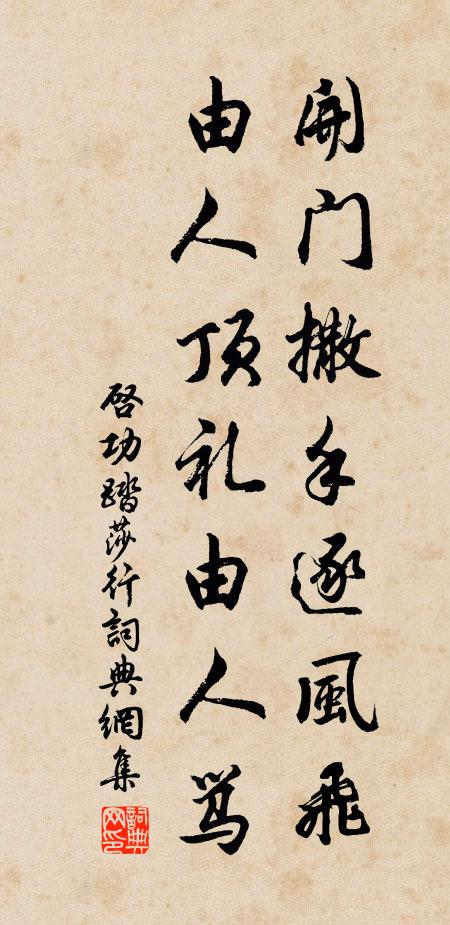 開门撒手逐風飛
由人顶礼由人骂
启功踏莎行詞典網集
詞典网印